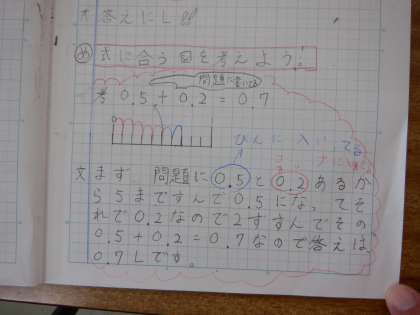 答えに L
め 式に合う図を考えよう!
問題に書いてる
考 0.5+0.2=0.7
びんに入って
文 まず、問題に0.5と0.2あるか
ら5まですすんで0.5になってそ
れで0.2なので2すすんでその
0.5+0.2=0.7なので答えは、
0.7Lです。